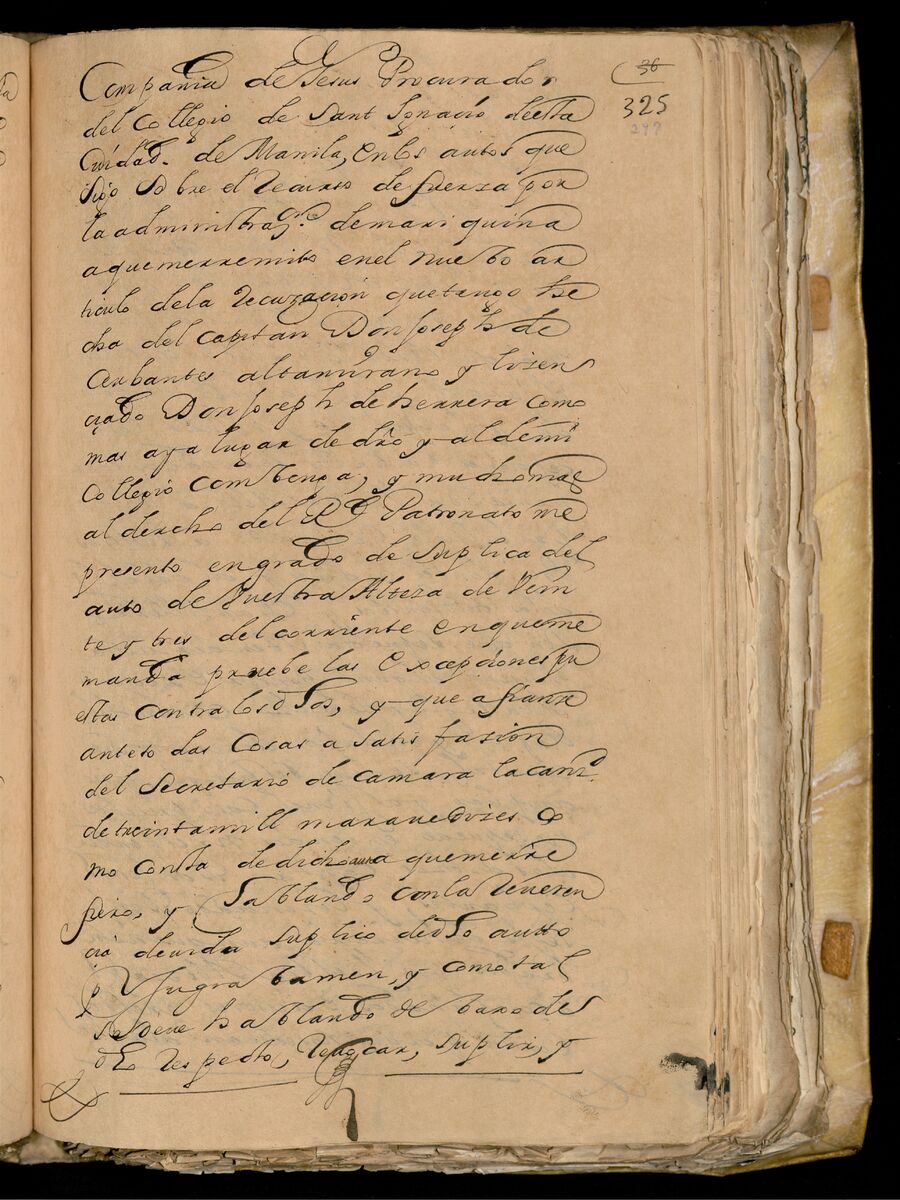 36
325
277
Compañia de Jesus Procurador
del Collegio de Sant Ignacio desta
Ciudad. de Manila, enlos autos que
sigo sobre el Recurso de fuerza por
la administraon. demariquina
aquemerremito enel nuebo ar
ticulo dela recuzacion quetengo he
cha del capitan Don Joseph de
Cerbantes altamirano y lizen
ciado Don Joseph de herrera como
mas aya lugar de dro y aldemi
Collegio combenga, y mucho mas
al derecho del Rl Patronato me
presento engrado de suplica del
auto de Vuestra Alteza de Vein
te y tres del corriente enqueme
manda pruebe las excepciones pu
estas contra los dhos, y que afianze
anteto das Cosas a satisfazion
del Secretario de camara lacantd.
de treintamill maravedises co
mo consta dedicho auto aquemerre
fiero, y hablando conla reveren
cia devida suplico dedho autto
p Yn gratamen, y como tal
se deve hablando de baxo des
de Respecto, Revocar, suplir, y